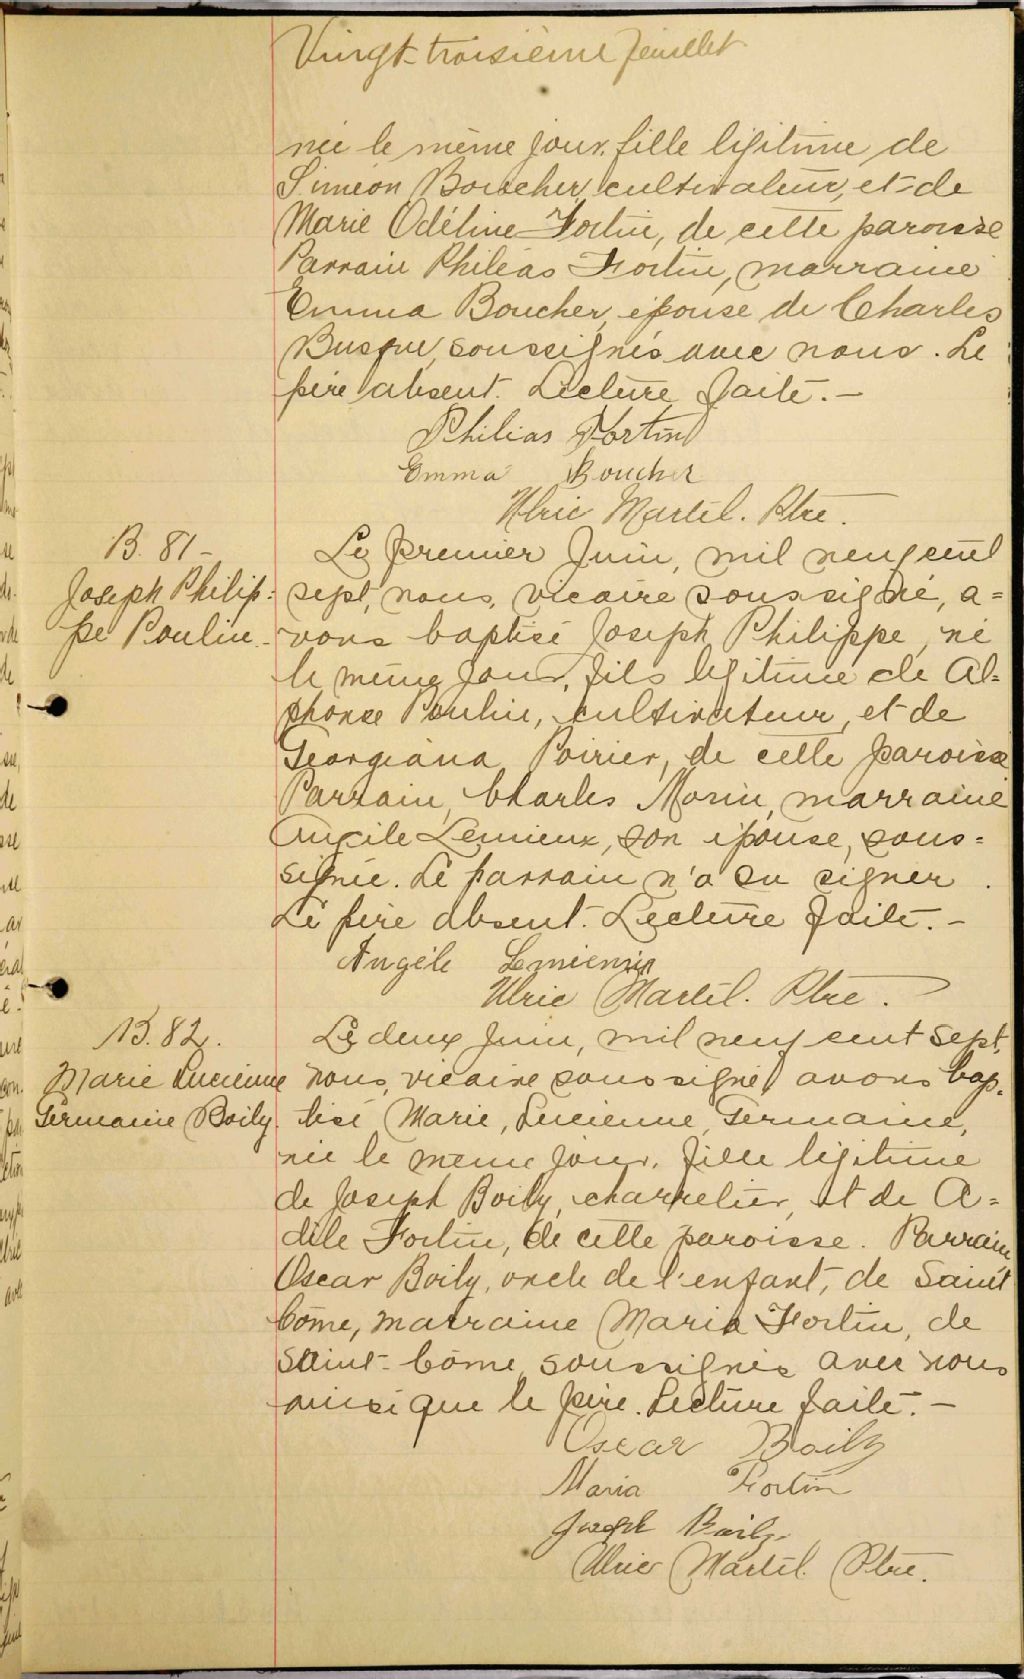 Vingt-troisième feuillet
née le même jour, fille légitime de
Siméon Boucher, cultivateur, et de
Marie Odéline Fortin, de cette paroisse
Parrain Philéas Fortin, marraine
Emma Boucher, épouse de Charles
Busque, soussignés avec nous. Le
père absent. Lecture faite. —
Philias Fortin
Emma Boucher
Ulric Martel. Ptre.
B. 81 -
Joseph Philip=
pe Poulin -
Le premier Juin, mil neuf cent
sept, nous, vicaire soussigné, a=
vons baptisé Joseph Philippe, né
le même jour, fils légitime de Al=
phonse Poulin, cultivateur, et de
Georgiana Poirier, de cette paroisse
Parrain, Charles Morin, marraine
Angèle Lemieux, son épouse, sous=
signée. Le parrain n'a su signer.
Le père absent. Lecture faite. -
Angéle Lemieux
Ulric Martel. Ptre.
B. 82.
Marie Lucienne
Germaine Boily.
Le deux Juin, mil neuf cent sept,
nous, vicaire soussigné avons bap=
tisé Marie, Lucienne, Germaine,
née le meme jour, fille légitime
de Joseph Boily, charretier, et de A=
dèle Fortin, de cette paroisse. Parrain
Oscar Boily, oncle de l'enfant, de Saint
Côme, marraine Maria Fortin, de
Saint-Côme, soussignés avec nous
ainsi que le père. Lecture faite. -
Oscar Boily
Maria Fortin
Joseph Boily
Ulric Martel. Ptre.